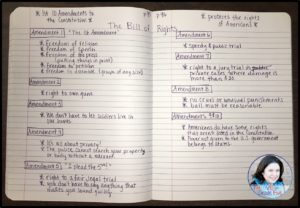 * 1st 10 Amendments to
the Constitution *
The Bill of Rights
Amendment 1 "The 1st Amendment"
* Freedom of religion
* Freedom of speech
* Freedom of the press
(putting things in print)
* Freedom to petition
* Freedom to assemble (groups of any size)
Amendment 2
* right to own guns
Amendment 3
* We don't have to let soldiers live in
our homes
Amendment
* It's all about privacy!
* The police cannot search your property
or body without a warrant.
Amendment 5 "I plead the 5th"
* right to a fair legal trial
* you don't have to say anything that
makes you sound guilty
* protects the rights
of Americans!
Amendment 6
* speedy & public trial
Amendment 7
* right to a jury trial in
cases where damage is
more than $20
Amendment 8
* no cruel or unusual punishments
* bail must be reasonable
Amendments
* Americans do have some rights
they aren't listed in the Constitution.
* Power not given to the U.S. government
belongs to states.